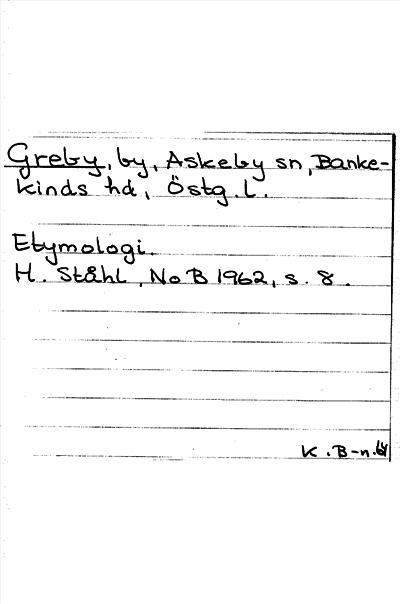 Greby, by, Askeby sn, Banke-
kinds hd, Östg. l.
Etymologi.
H. Ståhl, NoB 1962, s. 8.
K. B-n.